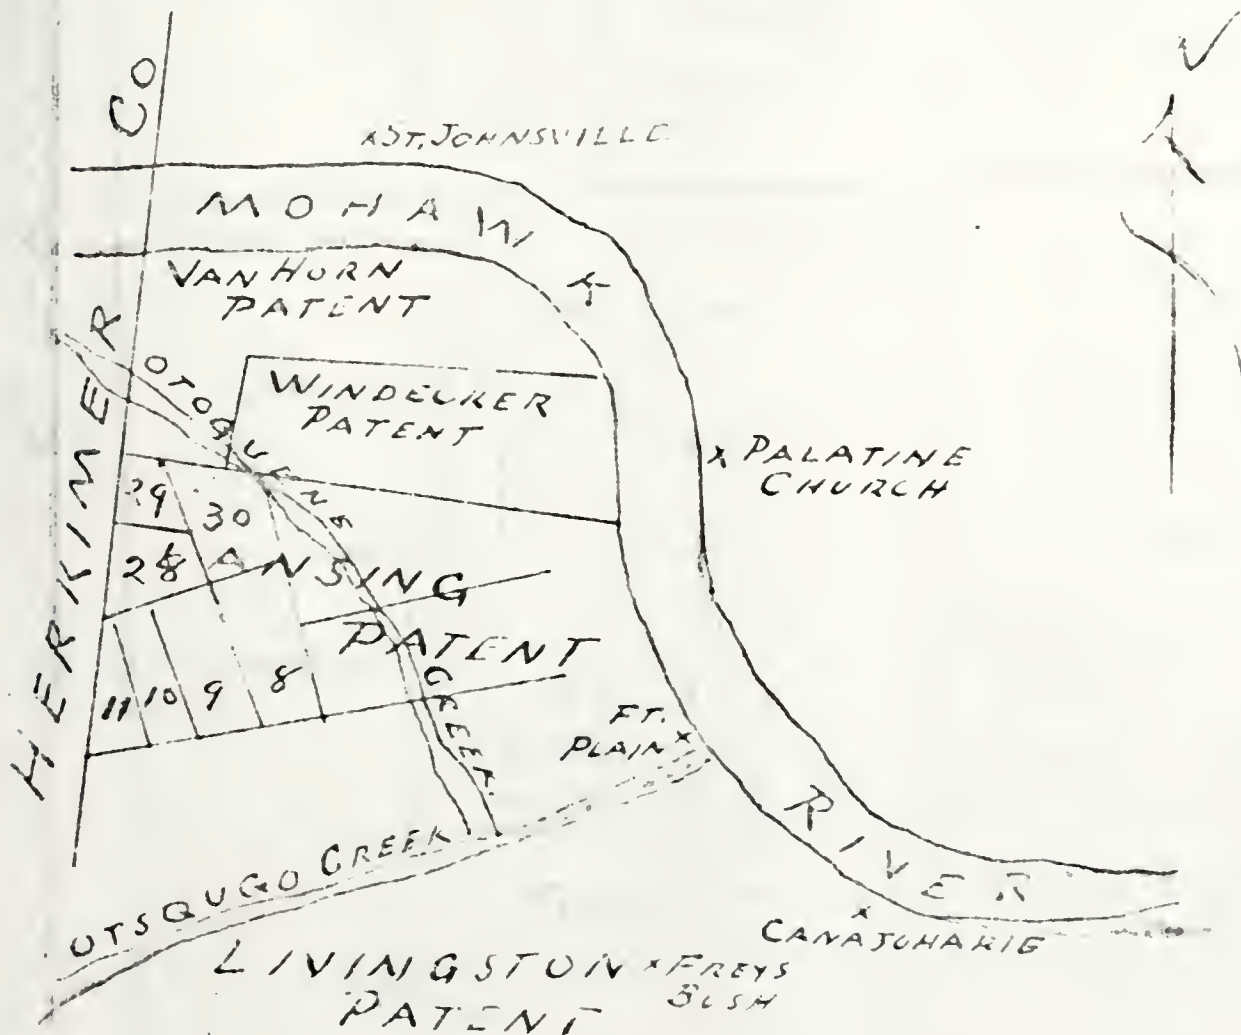 HERKIMER CO
×ST. JOHNSVILLE
MOHAWK RIVER
VAN HORN
PATENT
WINDECKER
PATENT
×PALATINE
CHURCH
29
30
28
LANSING
PATENT
11
10
9
8
CREEK.
FT.
PLAIN×
OTSQUGO CREEK
CANAJOHARIE
LIVINGSTON
PATENT
×FREYS
BUSH